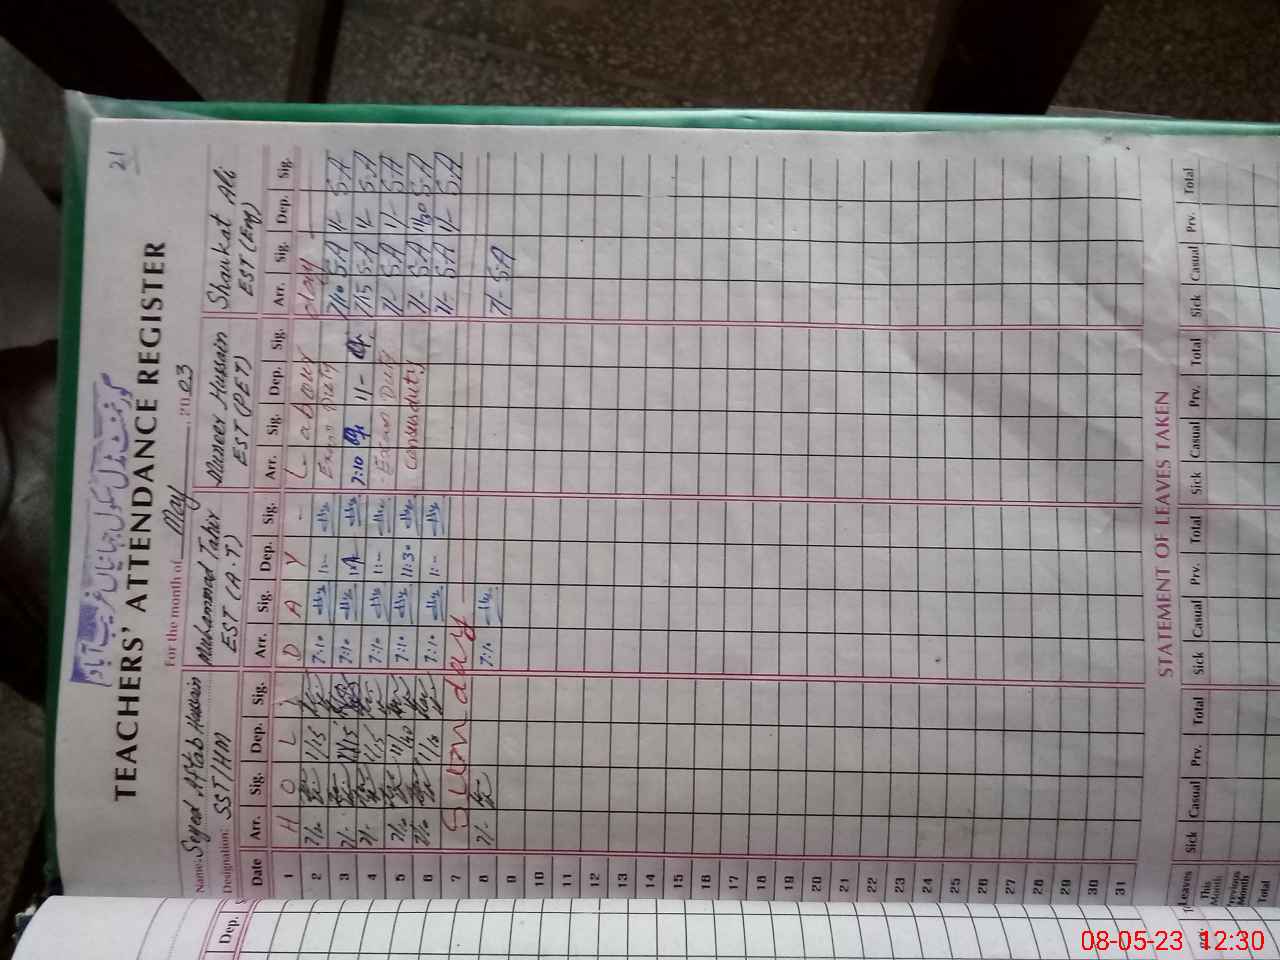 21
گورنمنٹ مڈل سکول چاہ
غریب آباد
TEACHERS' ATTENDANCE REGISTER
For the month of May, 2003
Name: Seyed Aftab Hussain Muhammad Tahir Muneer Hussain Shaukat Ali
Designation: SST/HM EST (A.T) EST (PET) EST (Eng)
Date Arr. Sig. Dep. Sig. Arr. Sig. Dep. Sig. Arr. Sig. Dep. Sig. Arr. Sig. Dep. Sig.
1 H O L I D A Y - L-abour day
2 7/10 1/15 7:10 1:- Exam Duty 7/10 S.A 1/- S.A
3 7/- 1/15 7:10 7:10 11- 7/15 S.A 1/- S.A
4 7/- 1/15 7:10 1:- -Exam Duty 7/- S.A 1/- S.A
5 7/10 11/40 7:10 11:30 Census duty 7/- S.A 11/30 S.A
6 7/10 1/10 7:10 1:- 7/- S.A 1/- S.A
7 Sunday
8 7/- 7:10 7/- S.A
9
10
11
12
13
14
15
16
17
18
19
20
21
22
23
24
25
26
27
28
29
30
31
STATEMENT OF LEAVES TAKEN
Leaves Sick Casual Prv. Total Sick Casual Prv. Total Sick Casual Prv. Total Sick Casual Prv. Total
This Month
Previous Month
Total
Dep.
08-05-23 12:30